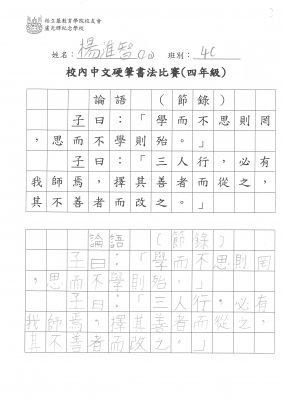 柏立基教育學院校友會
盧光輝紀念學校
姓名：楊淮智(11) 班別：4C
校內中文硬筆書法比賽(四年級)
論語 （節錄）
子曰：「學而不思則罔
，思而不學則殆。」
子曰：「三人行，必有
我師焉，擇其善者而從之，
其不善者而改之。」
論語 （節錄）
子曰：「學而不思則罔
，思而不學則殆。」
子曰：「三人行，必有
我師焉，擇其善者而從之，
其不善者而改之。」